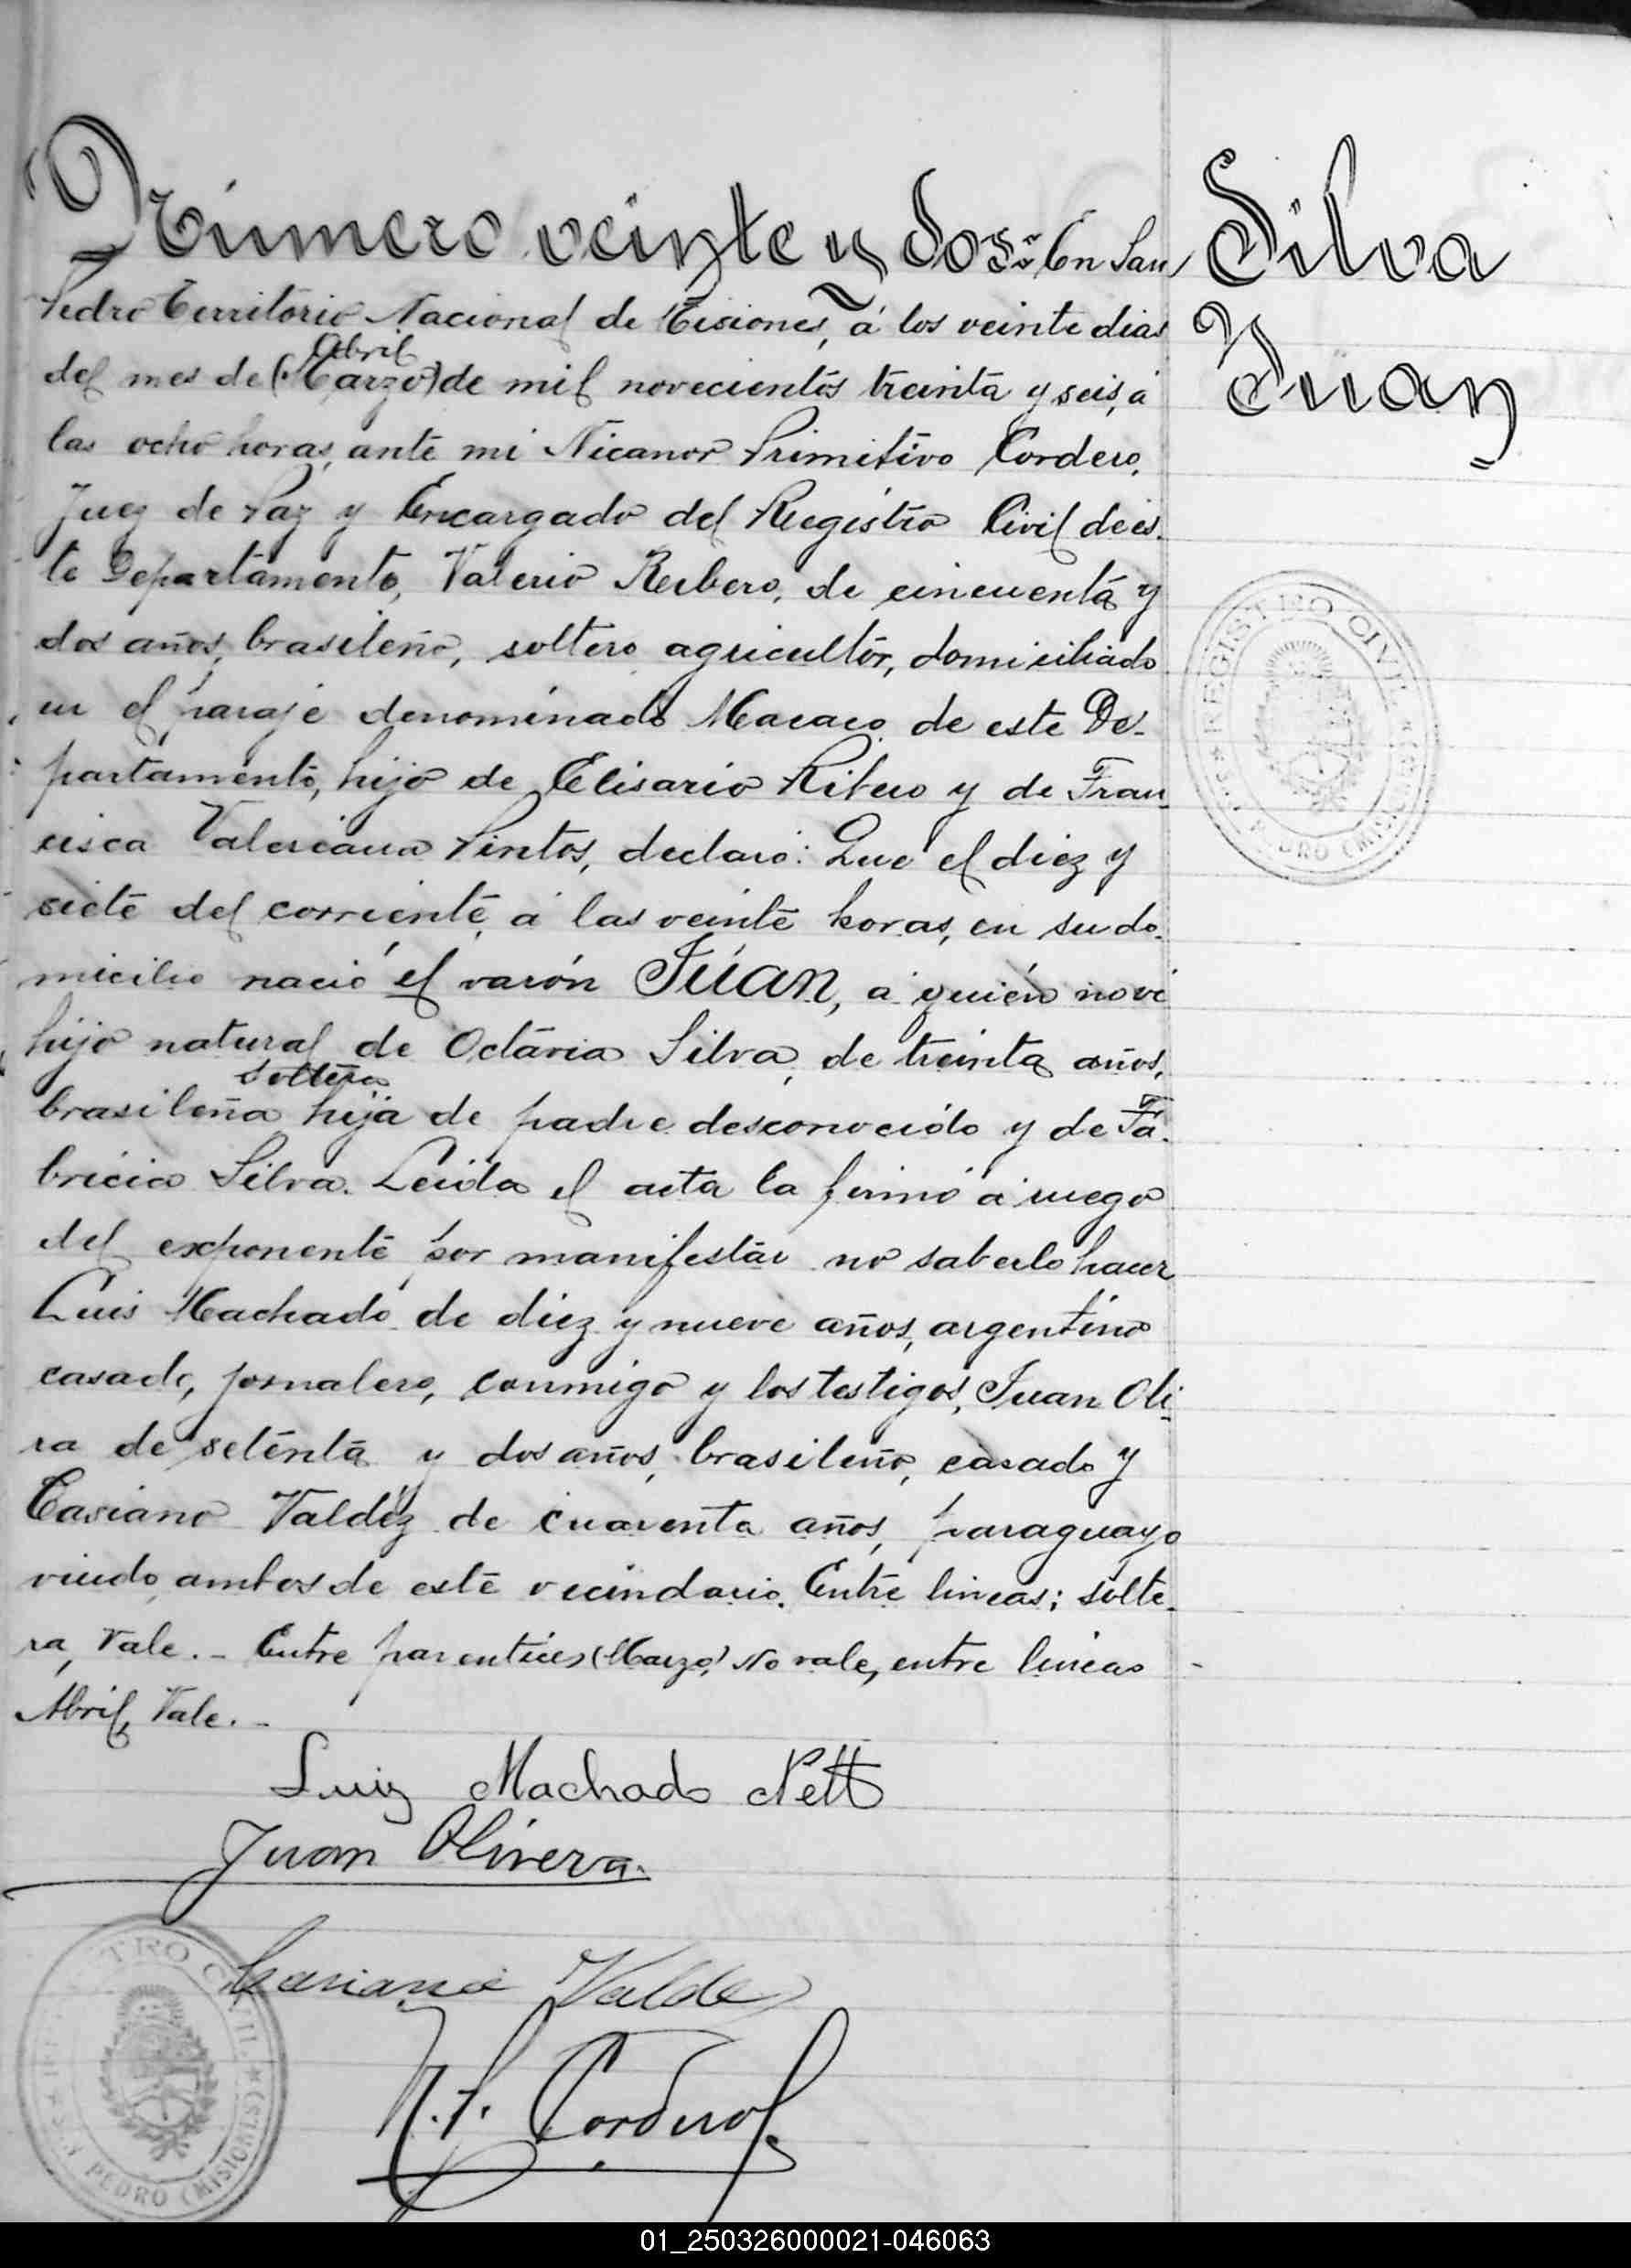 Número veinte y dos: En San
Silva
Juan
Pedro Territorio Nacional de Misiones, á los veinte dias
Abril
del mes de (Marzo) de mil novecientos treinta y seis, á
las ocho horas, ante mi Nicanor Primitivo Cordero,
Juez de Paz y Encargado del Registro Civil de es-
te Departamento, Valerio Reibero, de cincuenta y
dos años, brasileño, soltero agricultor, domiciliado
en el paraje denominado Macaco de este De-
partamento, hijo de Elisario Ribero y de Fran-
cisca Valereana Pintos, declaró: Que el diez y
siete del corriente, á las veinte horas, en su do-
micilio nació el varón Júan, á quién no ví
hijo natural de Octavia Silva, de treinta años,
soltera
brasileña hija de padre desconocido y de Fa-
bricia Silva. Leida el acta la firmó á ruego
del exponente por manifestar no saberlo hacer
Luis Machado de diez y nueve años, argentino
casado, jornalero, conmigo y los testigos, Juan Oli-
ra de setenta y dos años, brasileño, casado y
Casiano Valdéz de cuarenta años, paraguayo
viudo, ambos de este vecindario. Entre lineas; solte-
ra, Vale.- Entre parentices (Marzo) No vale, entre lineas
Abril, Vale.-
Luiz Machado Nett
Juan Olivera.
Casiano Valde
N. P. Cordero
REGISTRO CIVIL
SAN PEDRO (MISIONES)
TRO CIVIL
PEDRO (MISIONES)
01_250326000021-046063